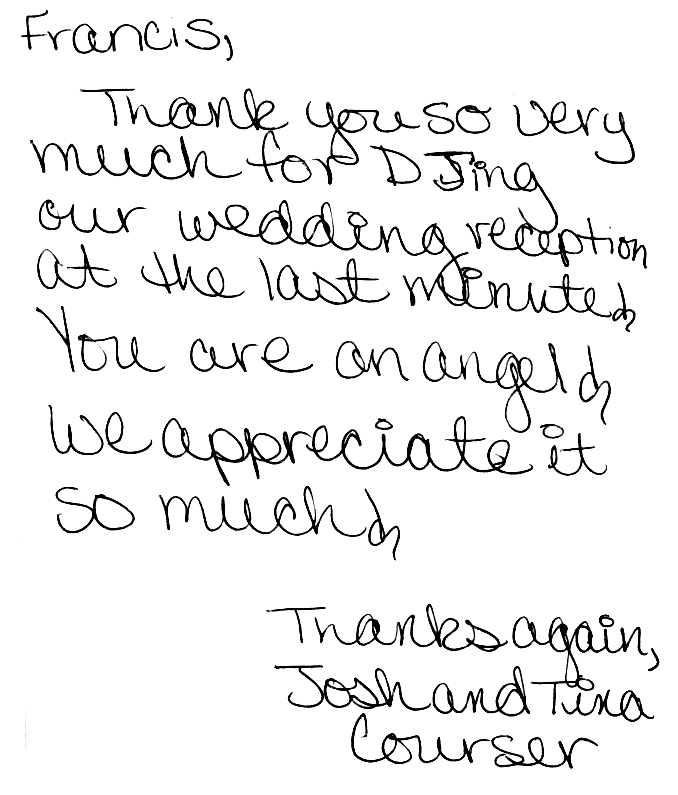 Francis,
Thank you so very
much for DJing
our wedding reception
at the last minute!
You are an angel!
We appreciate it
so much!
Thanks again,
Josh and Tina
Courser